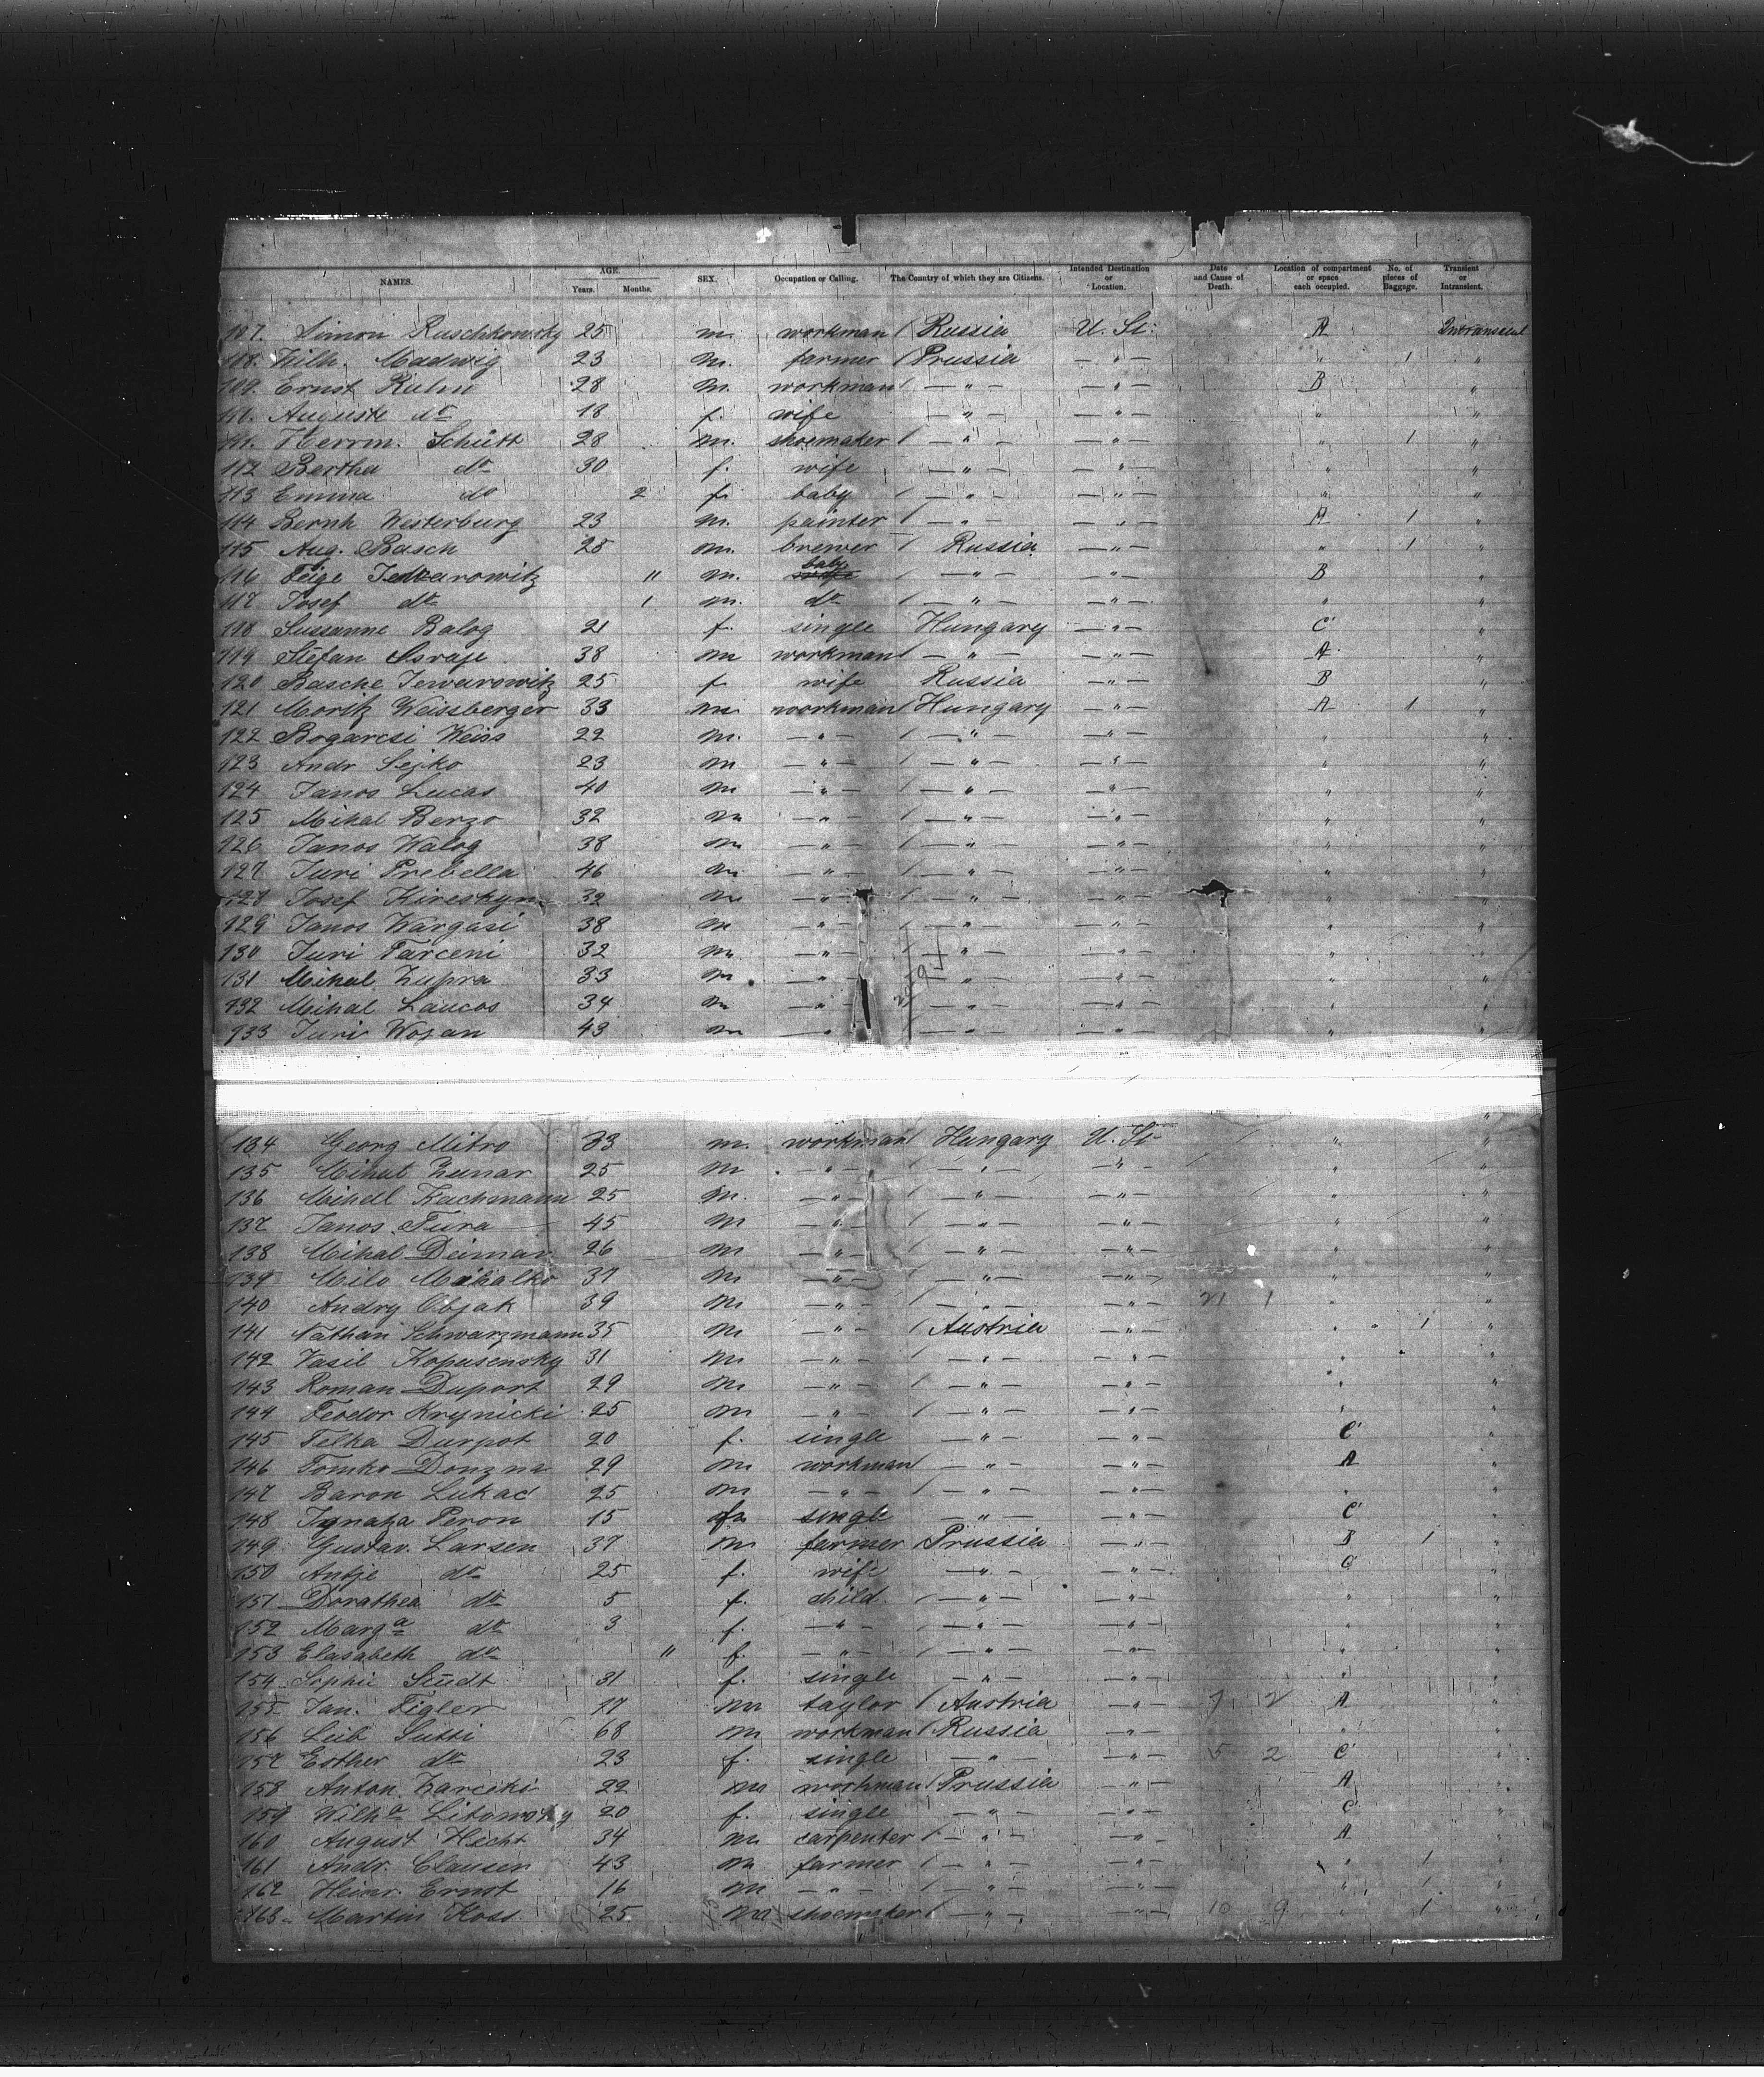 NAMES. AGE. Years. Months. SEX. Occupation or Calling. The Country of which they are Citizens. Intended Destination or Location. Date and Cause of Death. Location of compartment or space each occupied. No. of pieces of Baggage. Transient or Intransient.
107. Simon Ruschkowsky 25 m. workman Russia U. St: A Intransient
108. Wilh. 23 m. farmer Prussia — " — " 1 "
109. Ernst Kuhn 28 m. workman — " — — " — B "
110. Auguste do 18 f. wife — " — — " — " "
111. Herrm. Schütt 28 m. shoemaker — " — — " — " 1 "
112 Bertha do 30 f. wife — " — — " — " "
113 Emma do 2 f. baby — " — — " — " "
114 Bernh Westerburg 23 m. painter — " — — " — A 1 "
115 Aug. Basch 28 m. brewer Russia — " — " 1 "
116 Feige 11 m. baby — " — — " — B "
117 Josef do 1 m. do — " — — " — " "
118 Sussanne Balog 21 f. single Hungary — " — C "
119 Stefan 38 m workman — " — — " — A "
120 Basche Jewarowitz 25 f wife Russia — " — B "
121 Moritz Weissberger 33 m workman Hungary — " — A 1 "
122 Bogarcsi Weiss 22 m. — " — — " — — " — " "
123 Andr Sejko 23 m — " — — " — — " — " "
124 Janos Lucas 40 m — " — — " — — " — " "
125 Mihal Berzo 32 m — " — — " — — " — " "
126 Janos Walog 38 m — " — — " — — " — " "
127 Juri Prebella 46 m — " — — " — — " — " "
128 Josef 32 m — " — — " — — " — " "
129 Janos Wargasi 38 m — " — — " — — " — " "
130 Juri Farceni 32 m — " — — " — — " — " "
131 Mihal Zupra 33 m — " — — " — — " — " "
132 Mihal Laucos 34 m — " — — " — — " — " "
133 Juri Wojan 43 m — " — — " — — " — " "
134 Georg Mitro 33 m. workman Hungary U. St- " "
135 Mihal 25 m — " — — " — — " — " "
136 Mihal Kachmann 25 m. — " — — " — — " — " "
137 Janos Fura 45 m — " — — " — — " — " "
138 Mihal Deimar 26 m — " — — " — — " — " "
139 Milo Mihalko 37 m — " — — " — — " — " "
140 Andry Objak 39 m — " — — " — — " — 21 1 " "
141 Nathan Schwarzmann 35 m — " — Austria — " — " 1 "
142 Vasil Kopusensky 31 m — " — — " — — " — " "
143 Roman Duport 29 m — " — — " — — " — " "
144 Feodor Krynicki 25 m — " — — " — — " — " "
145 Felka Durpot 20 f. single — " — — " — C "
146 Tomko 29 m workman — " — — " — A "
147 Baron Lukac 25 m — " — — " — — " — " "
148 Peron 15 single — " — — " — C "
149 Gustav. Larsen 37 m farmer Prussia — " — B 1 "
150 Antje do 25 f. wife — " — — " — C "
151 Dorathea do 5 f. child — " — — " — " "
152 Marga do 3 f. — " — — " — — " — " "
153 Elasabeth do 11 f. — " — — " — — " — " "
154 Sophie Studt 31 f. single — " — — " — " "
155 Jan. Figler m taylor Austria — " — 7 2 A "
156 Leib Sutti 68 m workman Russia — " — " "
157 Esther do 23 f. single — " — — " — 5 2 C "
158 Anton. Zarciki 22 m workman Prussia — " — A "
159 Wilha 20 f. single — " — — " — C "
160 August Hecht 34 m carpenter — " — — " — A "
161 Andr. Clausen 43 m farmer — " — — " — " 1 "
162 Heinr. Ernst 16 m — " — — " — — " — " 1 "
163 Martin Koss 25 m shoemaker — " — — " — 10 9 " 1 "